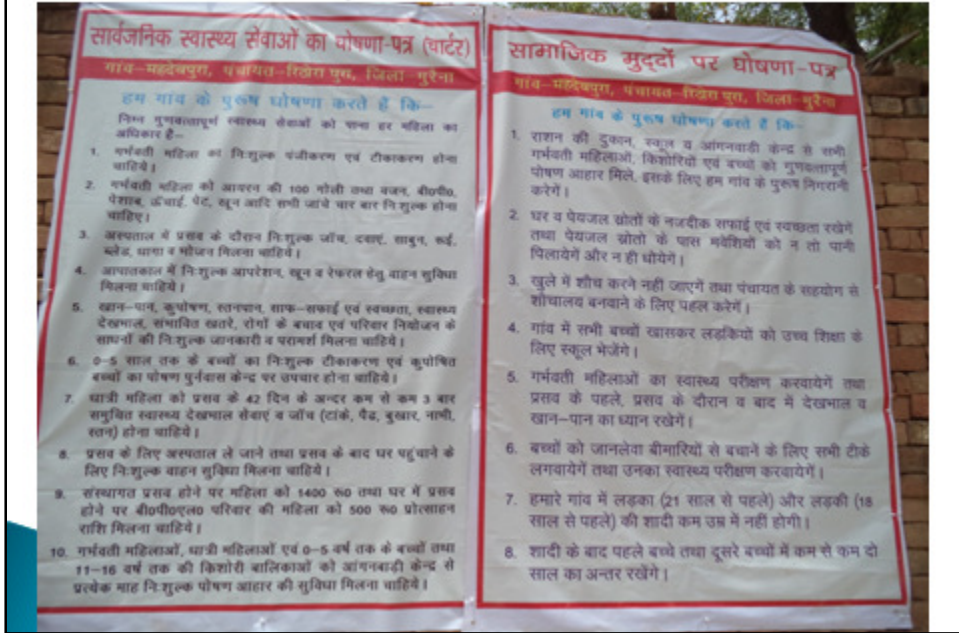 सार्वजनिक स्वास्थ्य सेवाओं का घोषणा-पत्र (चार्टर)
गांव-महदेबपुरा, पंचायत-रिठोरा पुरा, जिला-मुरैना
हम गांव के पुरूष घोषणा करते हैं कि–
निम्न गुणवत्तापूर्ण स्वास्थ्य सेवाओं को पाना हर महिला का
अधिकार है–
1. गर्भवती महिला का निःशुल्क पंजीकरण एवं टीकाकरण होना
चाहिये।
2. गर्भवती महिला को आयरन की 100 गोली तथा वजन, बी0पी0,
पेशाब, ऊँचाई, पेट, खून आदि सभी जांचे चार बार निःशुल्क होना
चाहिए।
3. अस्पताल में प्रसव के दौरान निःशुल्क जाँच, दवाएं, साबुन, रूई,
ब्लेड, धागा व भोजन मिलना चाहिये।
4. आपातकाल में निःशुल्क आपरेशन, खून व रेफरल हेतु वाहन सुविधा
मिलना चाहिये।
5. खान-पान, कुपोषण, स्तनपान, साफ-सफाई एवं स्वच्छता, स्वास्थ्य
देखभाल, संभावित खतरे, रोगों के बचाव एवं परिवार नियोजन के
साधनों की निःशुल्क जानकारी व परामर्श मिलना चाहिये।
6. 0-5 साल तक के बच्चों का निःशुल्क टीकाकरण एवं कुपोषित
बच्चों का पोषण पुर्नवास केन्द्र पर उपचार होना चाहिये।
7. धात्री महिला को प्रसव के 42 दिन के अन्दर कम से कम 3 बार
समुचित स्वास्थ्य देखभाल सेवाएं व जाँच (टांके, पैड, बुखार, नाभी,
स्तन) होना चाहिये।
8. प्रसव के लिए अस्पताल ले जाने तथा प्रसव के बाद घर पहुंचाने के
लिए निःशुल्क वाहन सुविधा मिलना चाहिये।
9. संस्थागत प्रसव होने पर महिला को 1400 रू0 तथा घर में प्रसव
होने पर बी0पी0एल0 परिवार की महिला को 500 रू0 प्रोत्साहन
राशि मिलना चाहिये।
10. गर्भवती महिलाओं, धात्री महिलाओं एवं 0-5 वर्ष तक के बच्चों तथा
11-16 वर्ष तक की किशोरी बालिकाओं को आंगनबाड़ी केन्द्र से
प्रत्येक माह निःशुल्क पोषण आहार की सुविधा मिलना चाहिये।
सामाजिक मुद्दों पर घोषणा-पत्र
गांव-महदेबपुरा, पंचायत-रिठोरा पुरा, जिला-मुरैना
हम गांव के पुरूष घोषणा करते है कि–
1. राशन की दुकान, स्कूल व आंगनवाडी केन्द्र से सभी
गर्भवती महिलाओं, किशोरियों एवं बच्चों को गुणवत्तापूर्ण
पोषण आहार मिले, इसके लिए हम गांव के पुरूष निगरानी
करेगें।
2. घर व पेयजल स्रोतों के नजदीक सफाई एवं स्वच्छता रखेगें
तथा पेयजल स्रोतो के पास मवेशियों को न तो पानी
पिलायेगें और न ही धोयेगें।
3. खुले में शौच करने नहीं जाएगें तथा पंचायत के सहयोग से
शौचालय बनवाने के लिए पहल करेगें।
4. गांव में सभी बच्चों खासकर लडकियों को उच्च शिक्षा के
लिए स्कूल भेजेंगे।
5. गर्भवती महिलाओं का स्वास्थ्य परीक्षण करवायेगें तथा
प्रसव के पहले, प्रसव के दौरान व बाद में देखभाल व
खान-पान का ध्यान रखेगें।
6. बच्चों को जानलेवा बीमारियों से बचाने के लिए सभी टीके
लगवायेगें तथा उनका स्वास्थ्य परीक्षण करवायेगें।
7. हमारे गांव में लड़का (21 साल से पहले) और लड़की (18
साल से पहले) की शादी कम उम्र में नहीं होगी।
8. शादी के बाद पहले बच्चे तथा दूसरे बच्चों में कम से कम दो
साल का अन्तर रखेंगे।